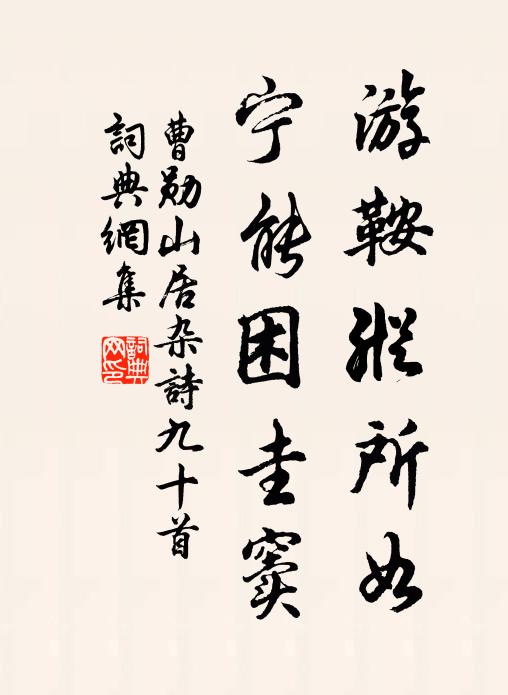 游鞍纵所如
宁能困圭窦
曹勋山居杂詩九十首
詞典網集
詞典网印